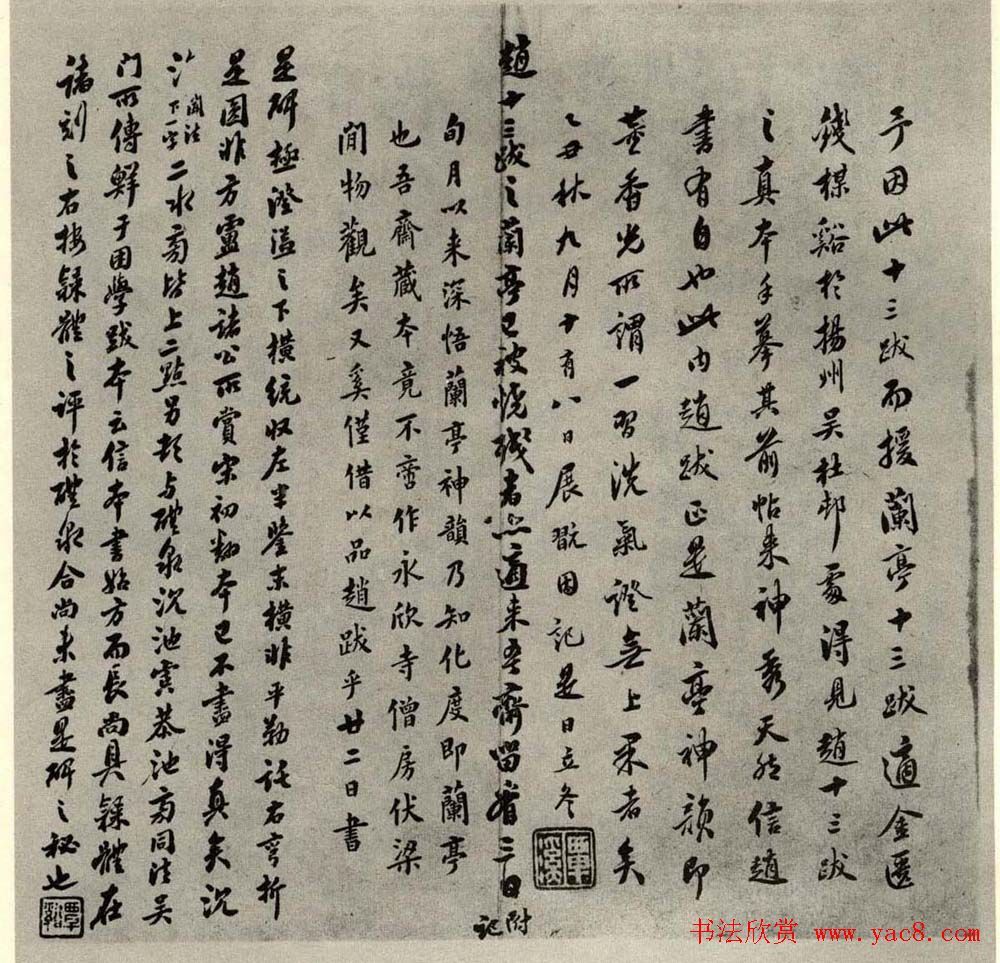 予因此十三跋而援蘭亭十三跋適金匱
錢楳谿於揚州吳杜邨處得見趙十三跋
之真本手摹其前帖來神秀天然信趙
書有自也此內趙跋正是蘭亭神韻即
董香光所謂一習洗氣證無上果者矣
乙丑秋九月十有八日展翫因記是日立冬
趙十三跋之蘭亭已被燒殘者亦適來吾齋留看三日附記
旬月以来深悟蘭亭神韻乃知化度即蘭亭
也吾齋藏本竟不啻作永欣寺僧房伏梁
間物觀矣又奚僅借以品趙跋乎廿二日書
是碑極澄溢之下橫統收左半鑒末橫非平勒託右彎折
是圓非方盧趙諸公所賞宋初翻本已不盡得真矣沉
闻法
下一字
二水旁皆上二點另起与醴泉沉池虞恭池旁同法吳
门所傳鮮于困學跋本云信本書始方而長尚具隸體在
諸刻之右按隸體之評於醴泉合尚未盡是碑之秘也
覃谿
书法欣赏 www.yac8.com